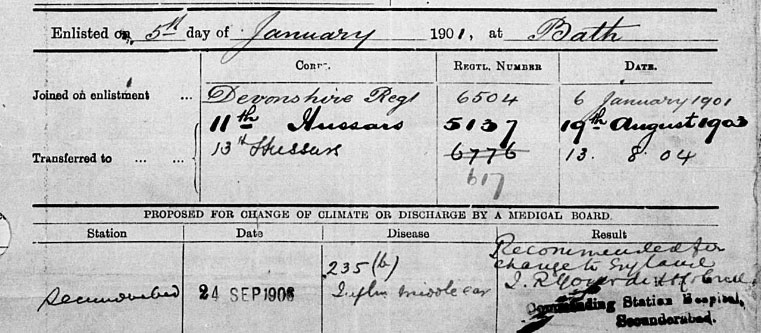 Enlisted on 5th day of January 1901, at Bath
Corps. Regtl. Number Date.
Joined on enlistment ... Devonshire Regt 6504 6 January 1901
11th Hussars 5137 19th August 1903
Transferred to ... ... 13th Hussars 6776 13. 8. 04
617
PROPOSED FOR CHANGE OF CLIMATE OR DISCHARGE BY A MEDICAL BOARD.
Station Date Disease Result
Recommended for
235 (b) change to England
Secunderabad 24 SEP 1906 middle ear
Commanding Station Hospital,
Secunderabad.